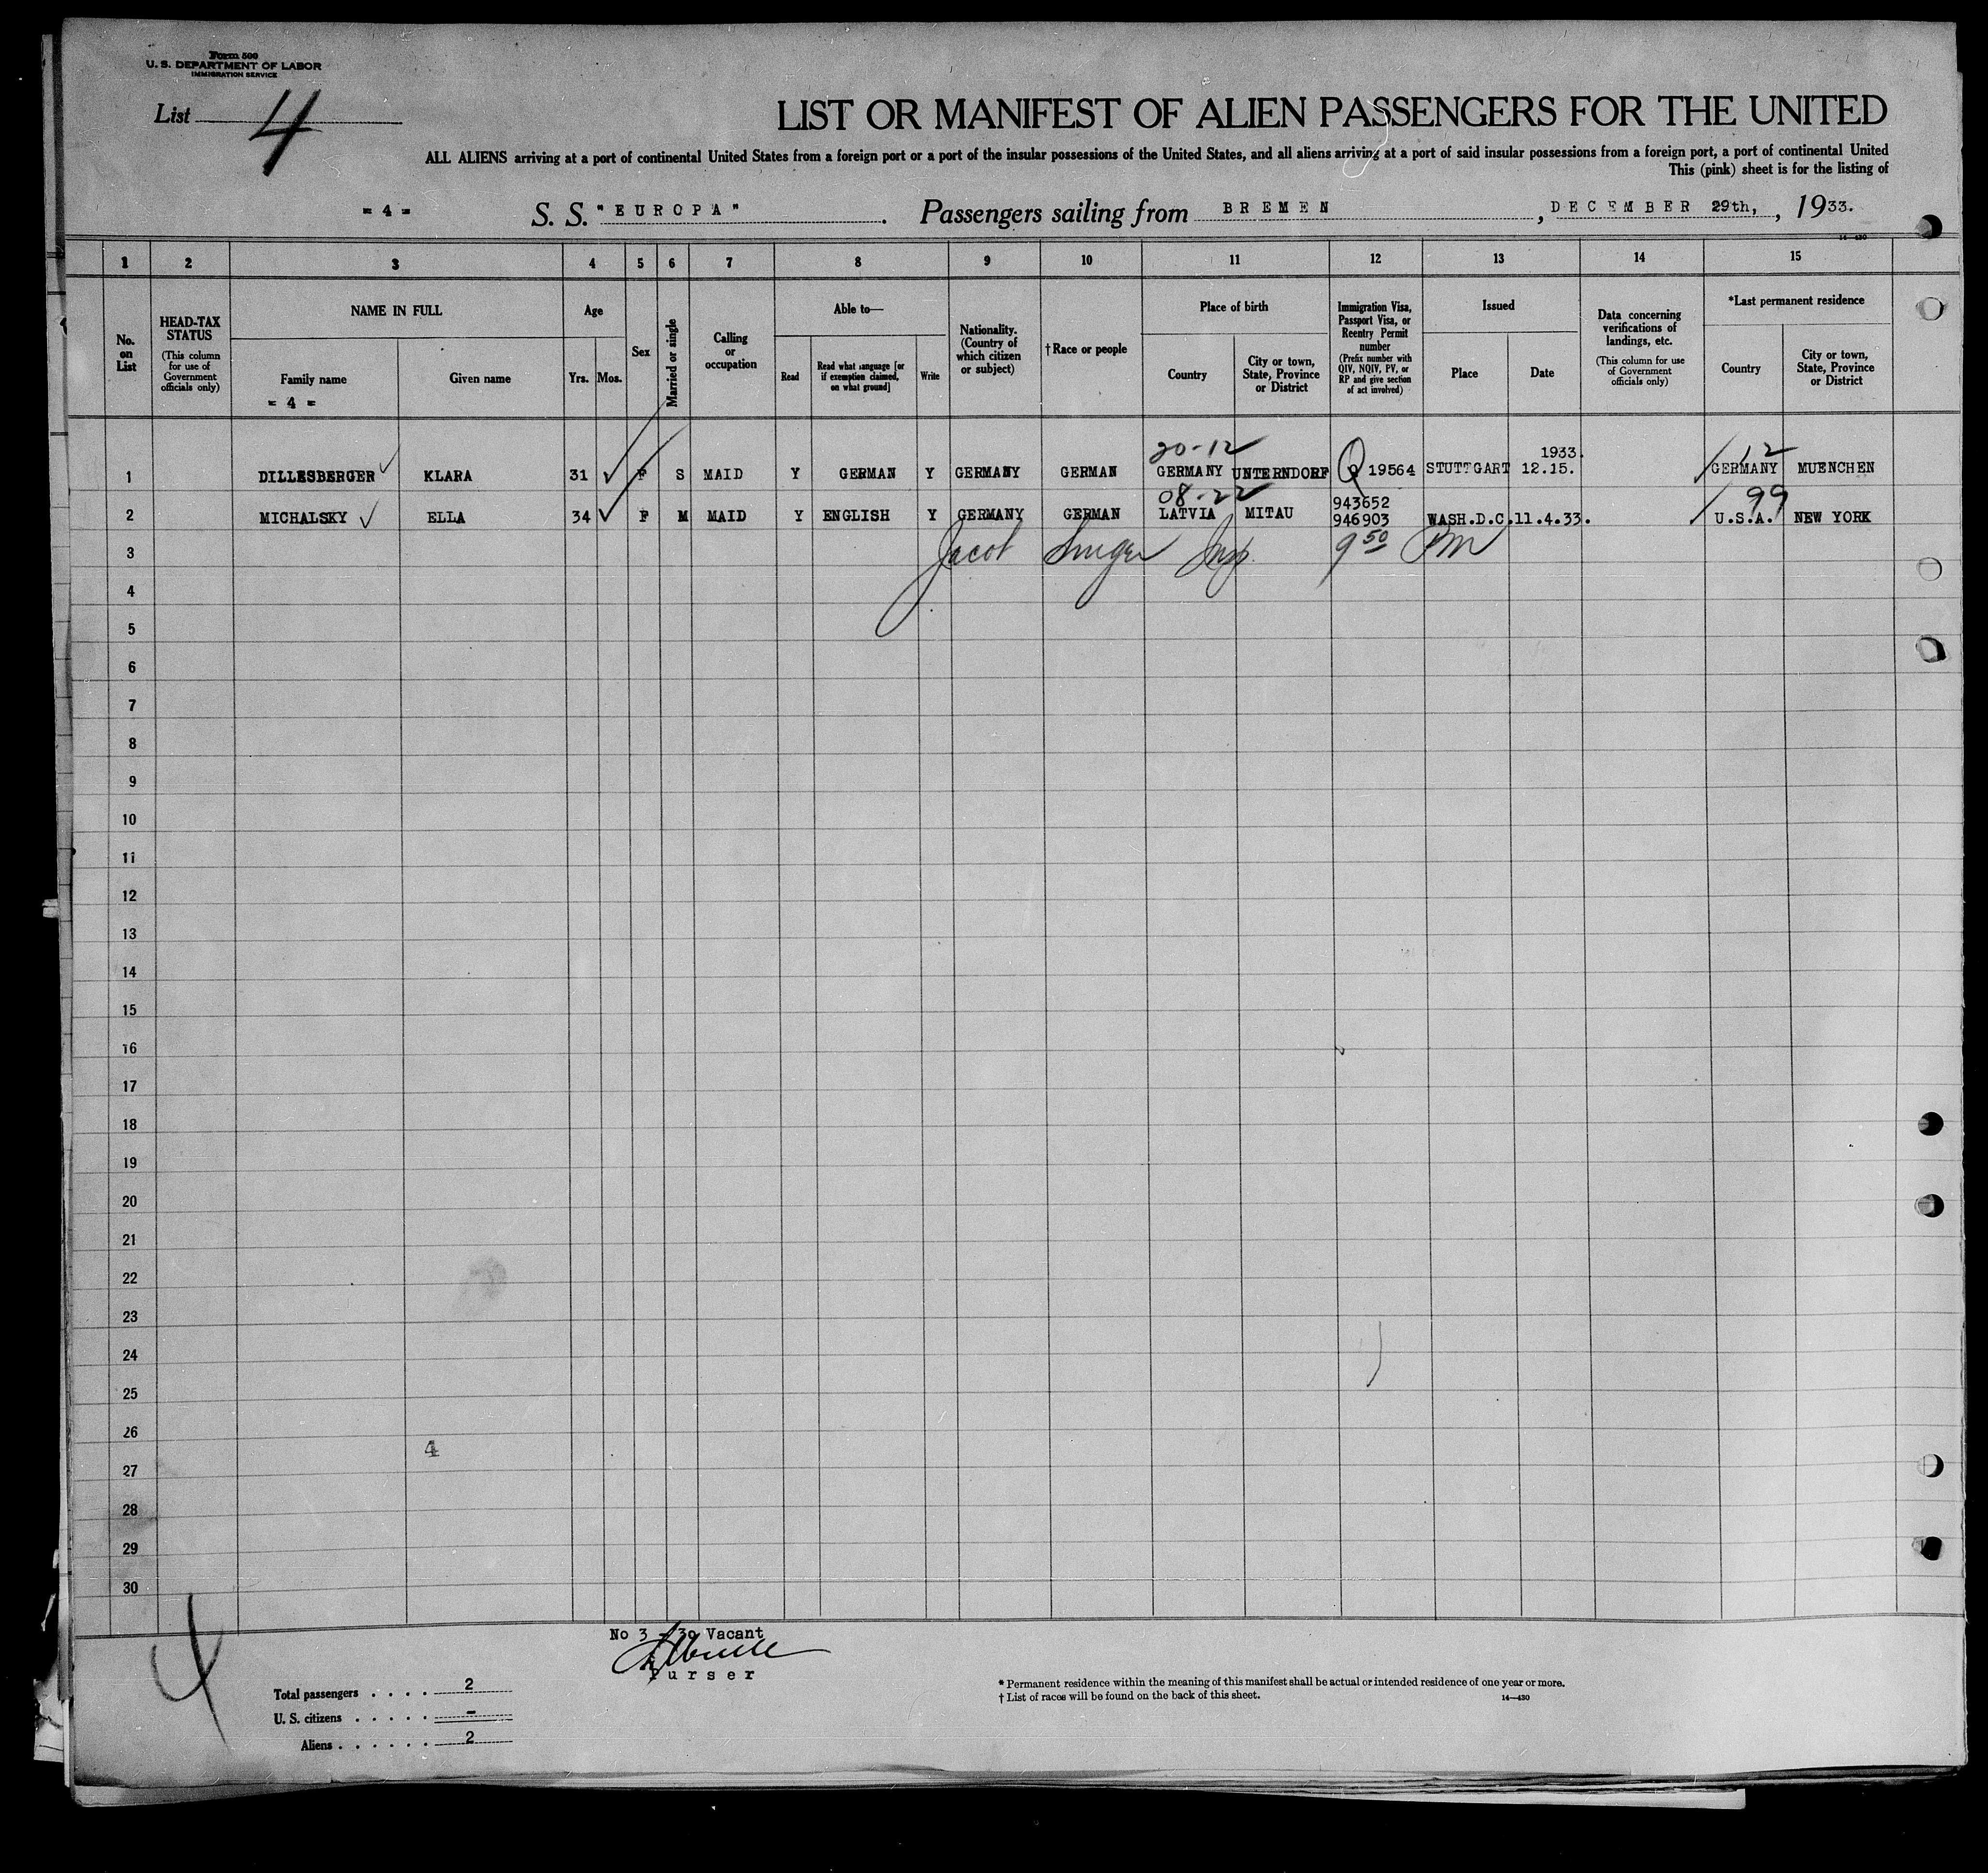 Form 500
U. S. DEPARTMENT OF LABOR
IMMIGRATION SERVICE
List 4
LIST OR MANIFEST OF ALIEN PASSENGERS FOR THE UNITED
ALL ALIENS arriving at a port of continental United States from a foreign port or a port of the insular possessions of the United States, and all aliens arriving at a port of said insular possessions from a foreign port, a port of continental United
This (pink) sheet is for the listing of
= 4 = S. S. "EUROPA" . Passengers sailing from BREMEN , DECEMBER 29th, , 1933.
14—430
1 2 3 4 5 6 7 8 9 10 11 12 13 14 15
No. on List
HEAD-TAX STATUS
(This column for use of Government officials only)
NAME IN FULL
Family name
= 4 =
Given name
Age
Yrs. Mos.
Sex
Married or single
Calling or occupation
Able to—
Read
Read what language [or if exemption claimed, on what ground]
Write
Nationality. (Country of which citizen or subject)
† Race or people
Place of birth
Country
City or town, State, Province or District
Immigration Visa, Passport Visa, or Reentry Permit number
(Prefix number with QIV, NQIV, PV, or RP and give section of act involved)
Issued
Place
Date
Data concerning verifications of landings, etc.
(This column for use of Government officials only)
*Last permanent residence
Country
City or town, State, Province or District
20-12 1933. 12
1 DILLESBERGER KLARA 31 F S MAID Y GERMAN Y GERMANY GERMAN GERMANY UNTERNDORF Q 19564 STUTTGART 12.15. GERMANY MUENCHEN
08-22 943652 99
2 MICHALSKY ELLA 34 F M MAID Y ENGLISH Y GERMANY GERMAN LATVIA MITAU 946903 WASH.D.C. 11.4.33. U.S.A. NEW YORK
3 Jacob Insp. 9 50 PM
4
5
6
7
8
9
10
11
12
13
14
15
16
17
18
19
20
21
22
23
24
25
26
4
27
28
29
30
4
No 3 - 30 Vacant
Purser
Total passengers . . . . 2
U. S. citizens . . . . . -
Aliens . . . . . . 2
* Permanent residence within the meaning of this manifest shall be actual or intended residence of one year or more.
† List of races will be found on the back of this sheet. 14—430